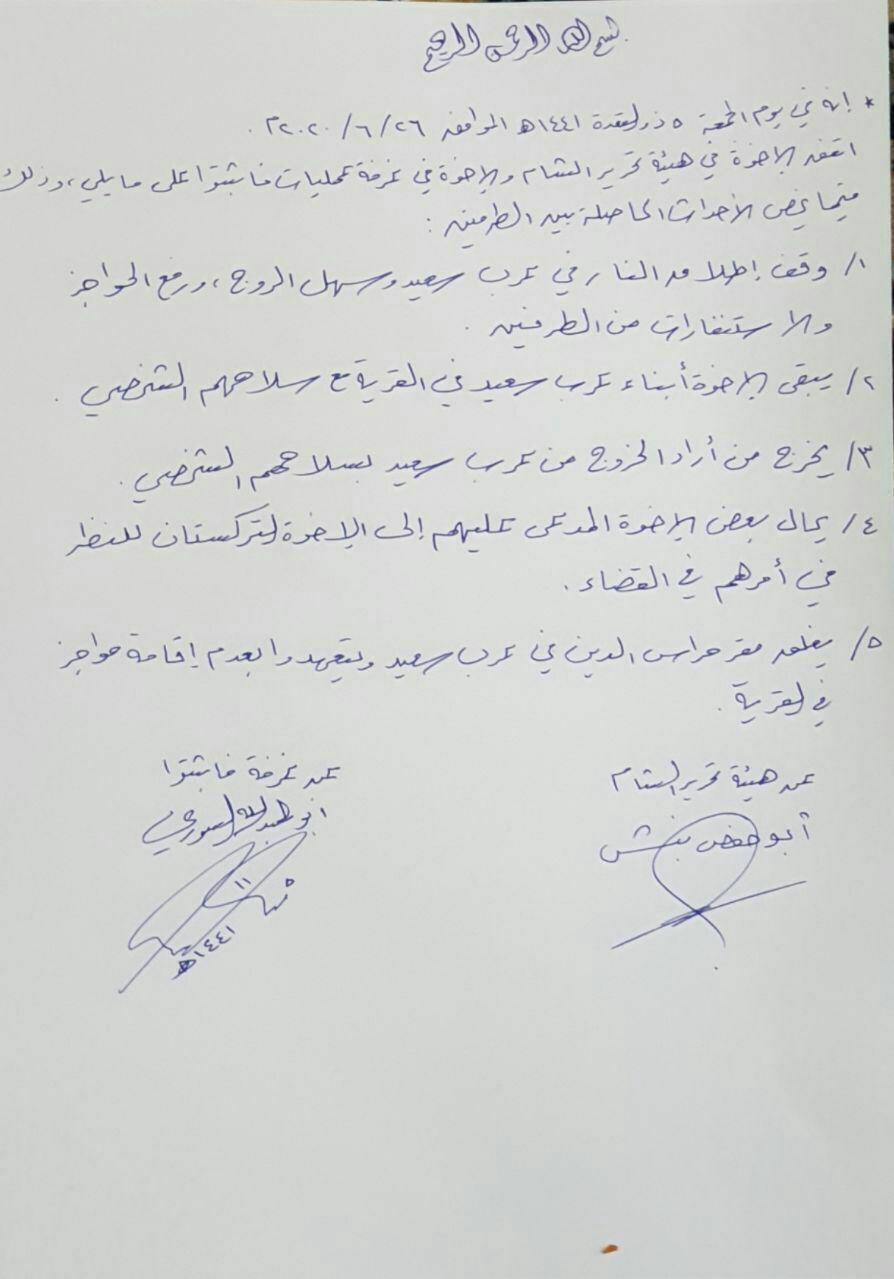 بسم الله الرحمن الرحيم
* إنه في يوم الجمعة ٥ ذو القعدة ١٤٤١هـ الموافق ٢٦/٦/٢٠٢٠م.
اتفق الإخوة في هيئة تحرير الشام والإخوة في غرفة عمليات فاثبتوا على ما يلي، وذلك
فيما يخص الأحداث الحاصلة بين الطرفين:
١/ وقف إطلاق النار في عرب سعيد وسهل الروج، ورفع الحواجز
والاستنفارات من الطرفين.
٢/ يبقى الإخوة أبناء عرب سعيد في القرية مع سلاحهم الشخصي.
٣/ يخرج من أراد الخروج من عرب سعيد بسلاحهم الشخصي.
٤/ يحال بعض الإخوة المدعى عليهم إلى الإخوة التركستان للنظر
في أمرهم في القضاء.
٥/ يغلق مقر حراس الدين في عرب سعيد ويتعهدوا بعدم إقامة حواجز
في القرية.
عن هيئة تحرير الشام
أبو حفص بنش
عن غرفة فاثبتوا
أبو عبدالله السوري
٥
١١
١٤٤١هـ